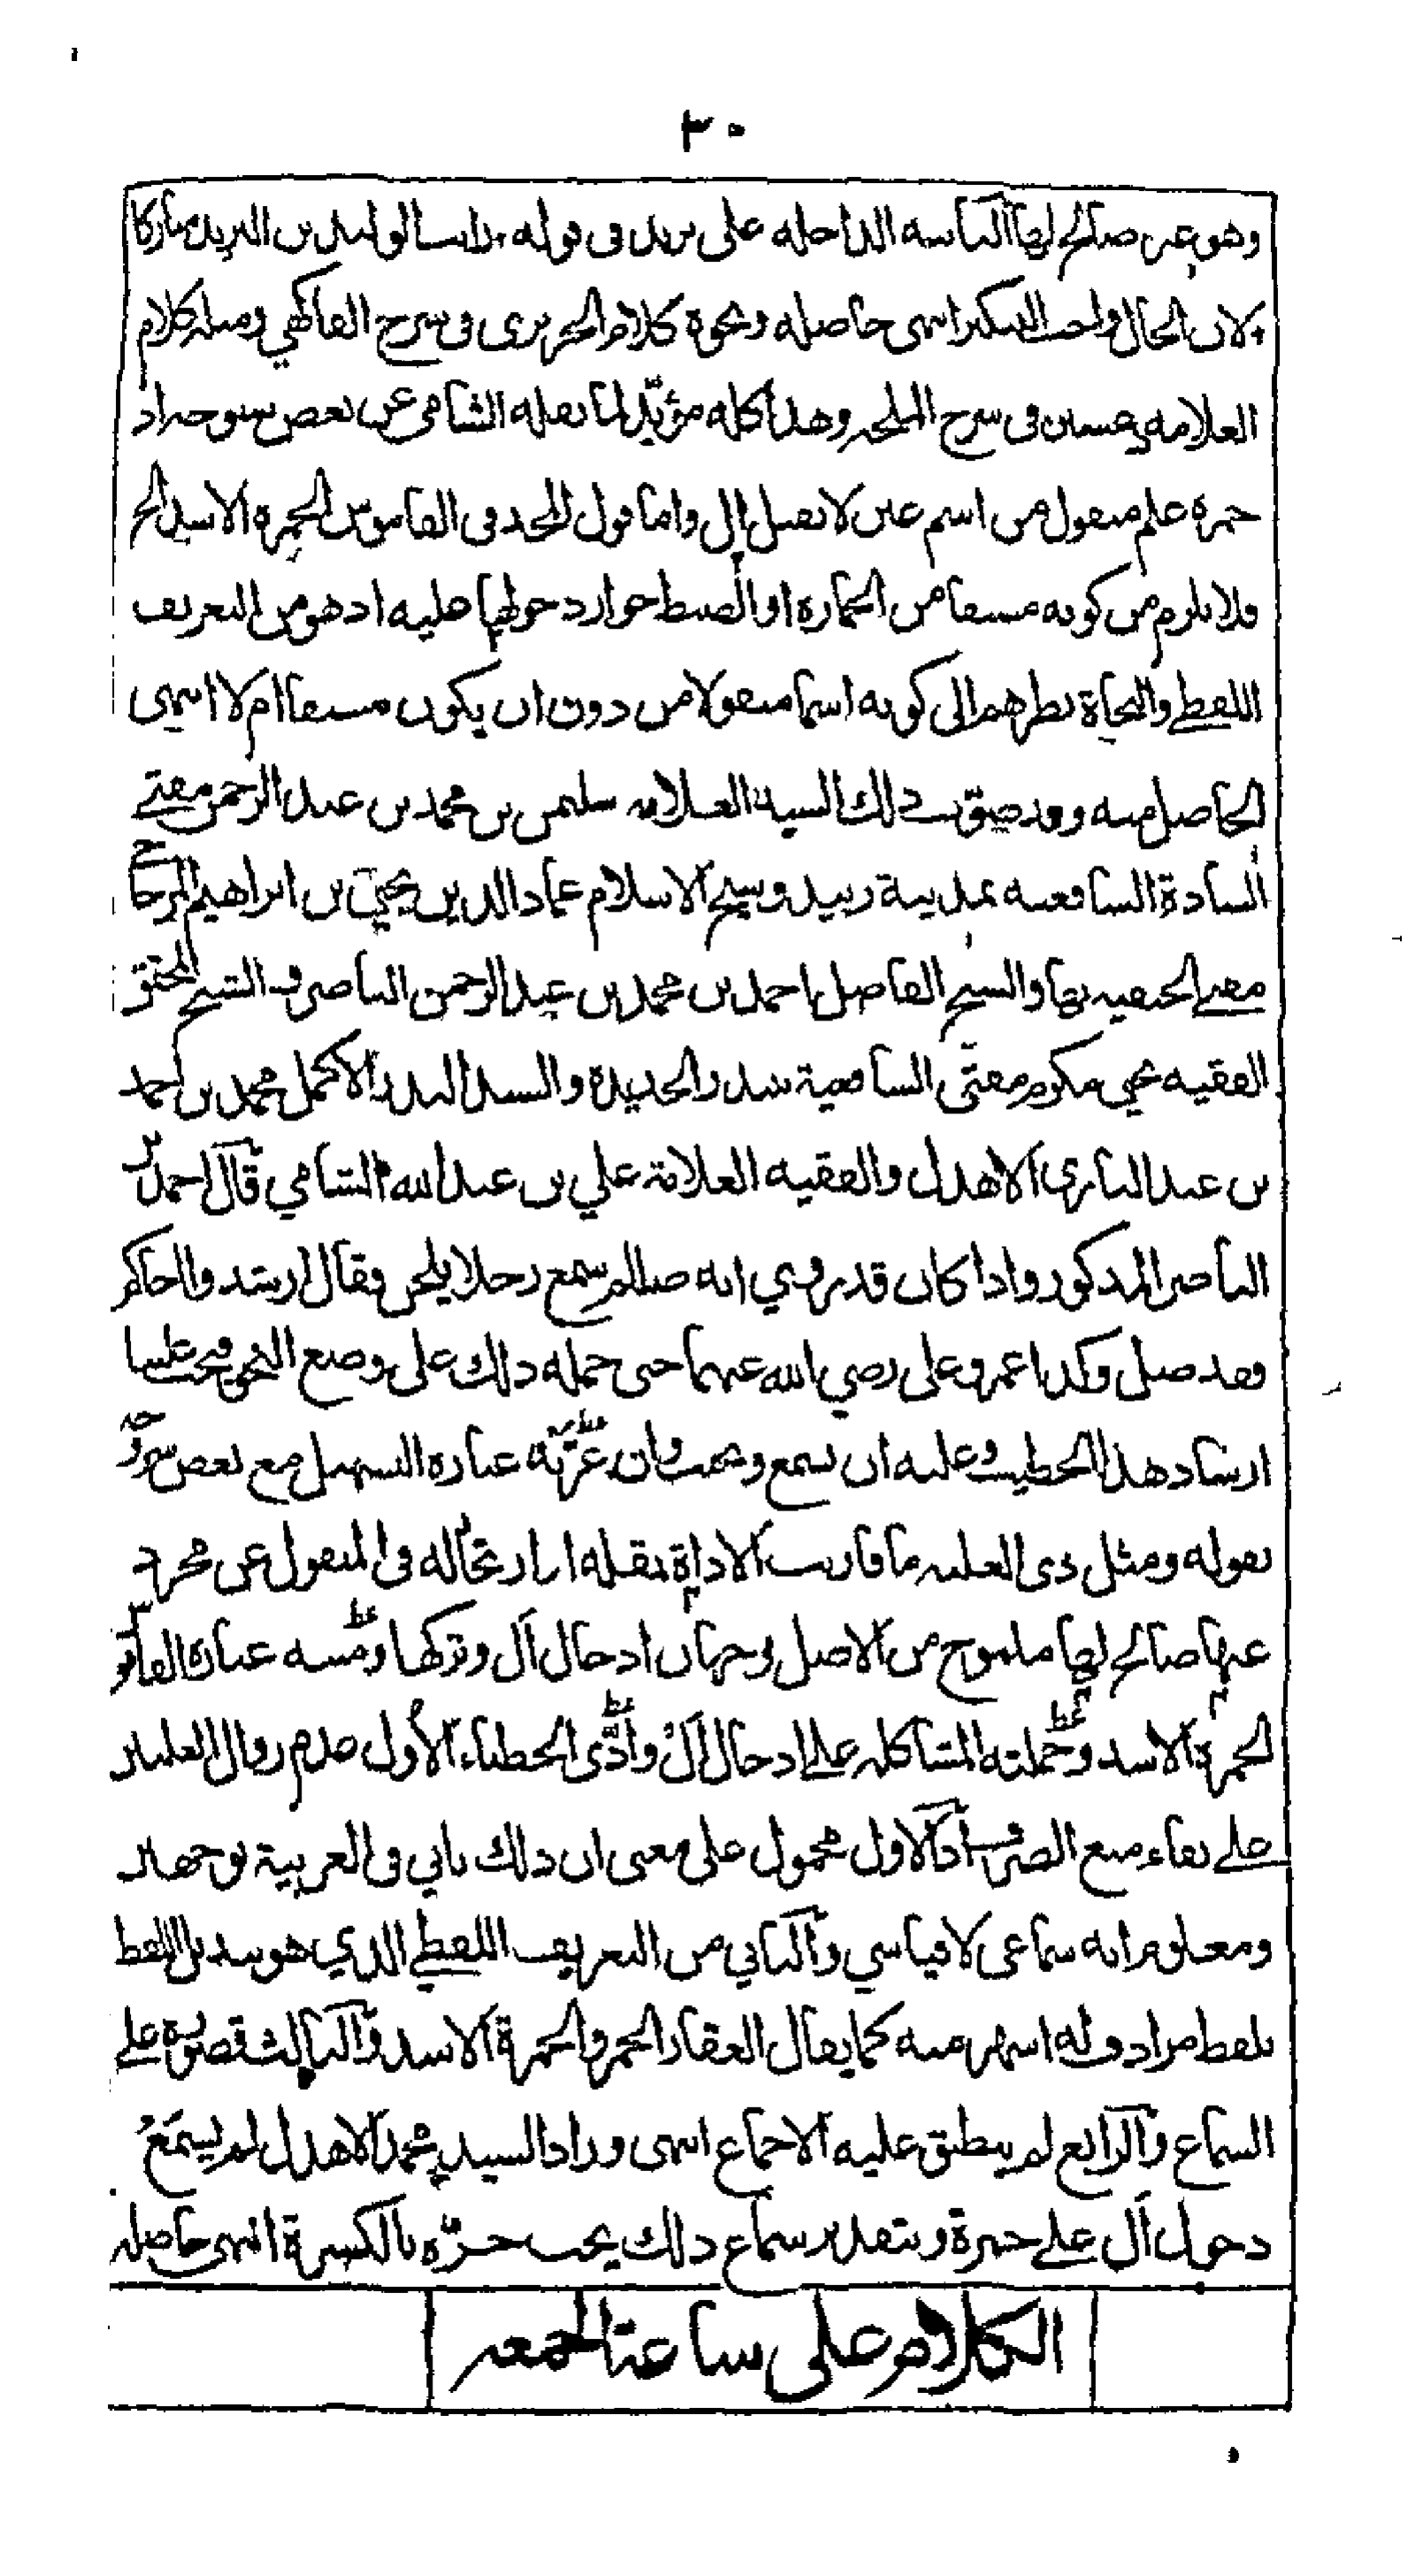 ٣٠
وهو غير صالح لها كالداخله على يزيد في قوله رايت الوليد بن اليزيد مباركا
لان الحال واجب التنكير انتهى حاصله ونحوه كلام الحريري في شرح الفاكهي ومثله كلام
العلامه في شرح الملحه وهذا كله مؤيد لما نقله الشامي عن بعض شيوخه اذ
حمزه علم منقول من اسم عين لا تقبل ال واما قول المجد في القاموس الحمزة الاسد الخ
فلا يلزم من كونه مشتقا من الحمازه او الضبط جواز دخولها عليه اذ هو من التعريف
اللفظي والنحاة نظرهم الى كونه اسما منقولا من دون ان يكون مشتقا ام لا انتهى
الحاصل منه وقد صوّب ذلك السيد العلامه سليمن بن محمد بن عبد الرحمن مفتي
السادة الشافعيه بمدينة زبيد وشيخ الاسلام عماد الدين يحيى بن ابراهيم المزجاجي
مفتي الحنفيه بها والشيخ الفاضل احمد بن محمد بن عبد الرحمن الناصري والشيخ المحقق
الفقيه يحيى مكرم مفتى الشافعية ببندر الحديدة والسيد البدر الاكمل محمد بن احمد
بن عبد الباري الاهدل والفقيه العلامة علي بن عبد الله الشامي قال احمد بن
الناصر المذكور واذا كان قد روي انه صلى الله سمع رجلا يلحن فقال ارشدوا اخاكم
فقد ضل وكذا عمر وعلى رضي الله عنهما حتى حمله ذلك على وضع النحو فحق علينا
ارشاد هذا الخطيب وعليه ان يسمع ويجيب وان غرّته عبارة التسهيل مع بعض شروحه
بقوله ومثل ذي الغلبه ما قارنت الاداة نقله او ارتجاله وفي المنقول عن مجرد
عنها صالح لها ملموح من الاصل وجهان ادخال ال وتركها ومنه عبارة القاموس
الحمزة الاسد وحملته المشاكله على ادخال ال وادّى الخطباء الاول عدم زوال العلميه
على بقاء منع الصرف اذ الاول محمول على معنى ان ذلك ياتي في العربية بوجهين
ومعلوم انه سماعي لا قياسي والثاني من التعريف اللفظي الذي هو تبديل اللفظ
بلفظ مرادف له اشهر منه كما يقال العقار الخمر والحمزة الاسد والثالث قصوره على
السماع والرابع لم ينطبق عليه الاجماع انتهى وزاد السيد محمد الاهدل لم يسمع
دخول ال على حمزة وبتقدير سماع ذلك يجب جرّه بالكسرة انتهى حاصله
الكلام على ساعة الجمعه